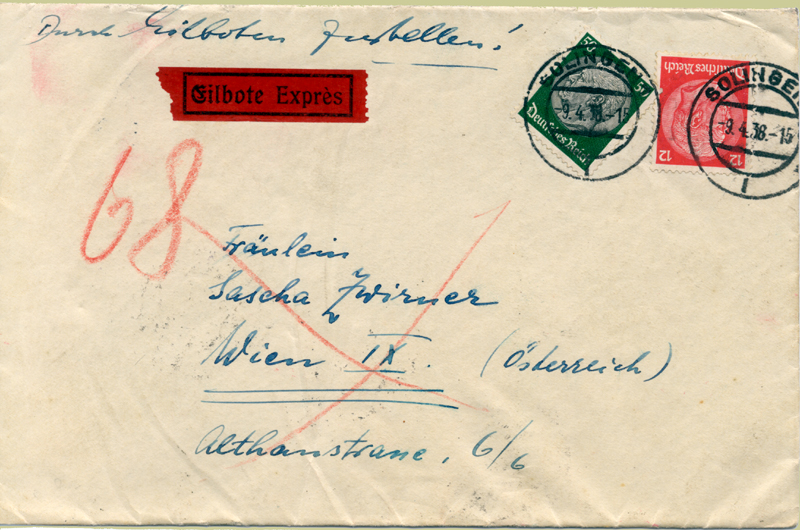 Durch Eilboten zustellen!
Eilbote Exprès
SOLINGEN
-9.4.38.-15
1
Deutsches Reich
SOLINGEN
-9.4.38.-15
1
Deutsches Reich
12 12
68
Fräulein
Sascha Zwirner
Wien IX. (Österreich)
Althanstrasse, 6/6